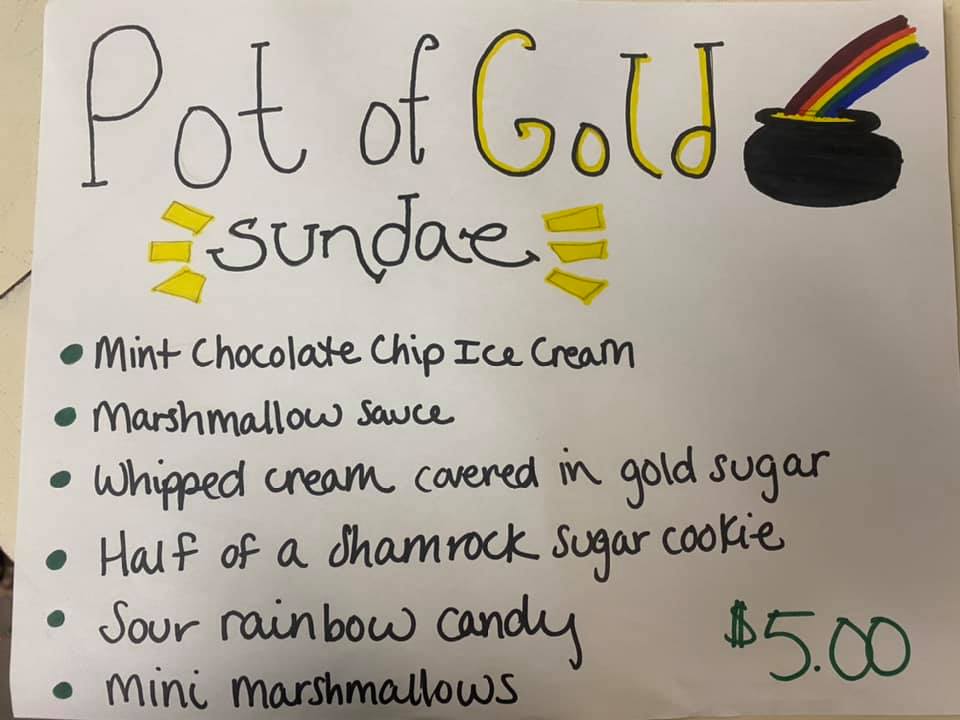 Pot of Gold
sundae
• Mint Chocolate Chip Ice Cream
• Marshmallow sauce
• Whipped cream covered in gold sugar
• Half of a shamrock sugar cookie
• Sour rainbow candy
• Mini marshmallows
$5.00